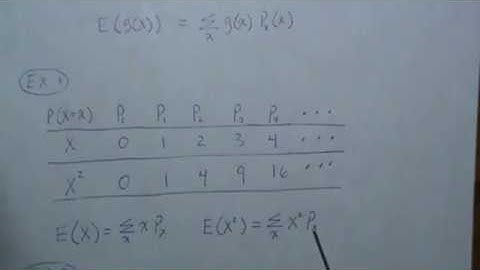 E(g(x)) = Σₓ g(x) Pₓ(x)
Ex 1
P(X=x) P₀ P₁ P₂ P₃ P₄ ...
X 0 1 2 3 4 ...
X² 0 1 4 9 16 ...
E(X) = Σₓ x Pₓ E(X²) = Σₓ X² Pₓ